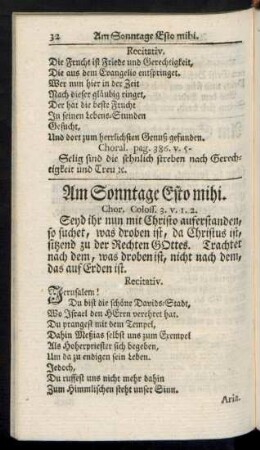 32 Am Sonntage Esto mihi.
Recitativ.
Die Frucht ist Friede und Gerechtigkeit,
Die aus dem Evangelio entspringet.
Wer nun hier in der Zeit
Nach dieser gläubig ringet,
Der hat die beste Frucht
In seinen Lebens-Stunden
Gesucht,
Und dort zum herrlichsten Genuß gefunden.
Choral. pag. 386. v. 5.
Selig sind die sehnlich streben nach Gerech-
tigkeit und Treu ꝛc.
Am Sonntage Esto mihi.
Chor. Coloss. 3. v. 1. 2.
Seyd ihr nun mit Christo auferstanden,
so suchet, was droben ist, da Christus ist,
sitzend zu der Rechten GOttes. Trachtet
nach dem, was droben ist, nicht nach dem,
das auf Erden ist.
Recitativ.
Jerusalem!
Du bist die schöne Davids-Stadt,
Wo Israel den HErrn verehret hat.
Du prangest mit dem Tempel,
Dahin Meßias selbst uns zum Exempel
Als Hoherpriester sich begeben,
Um da zu endigen sein Leben.
Jedoch,
Du ruffest uns nicht mehr dahin
Zum Himmlischen steht unser Sinn.
Aria.